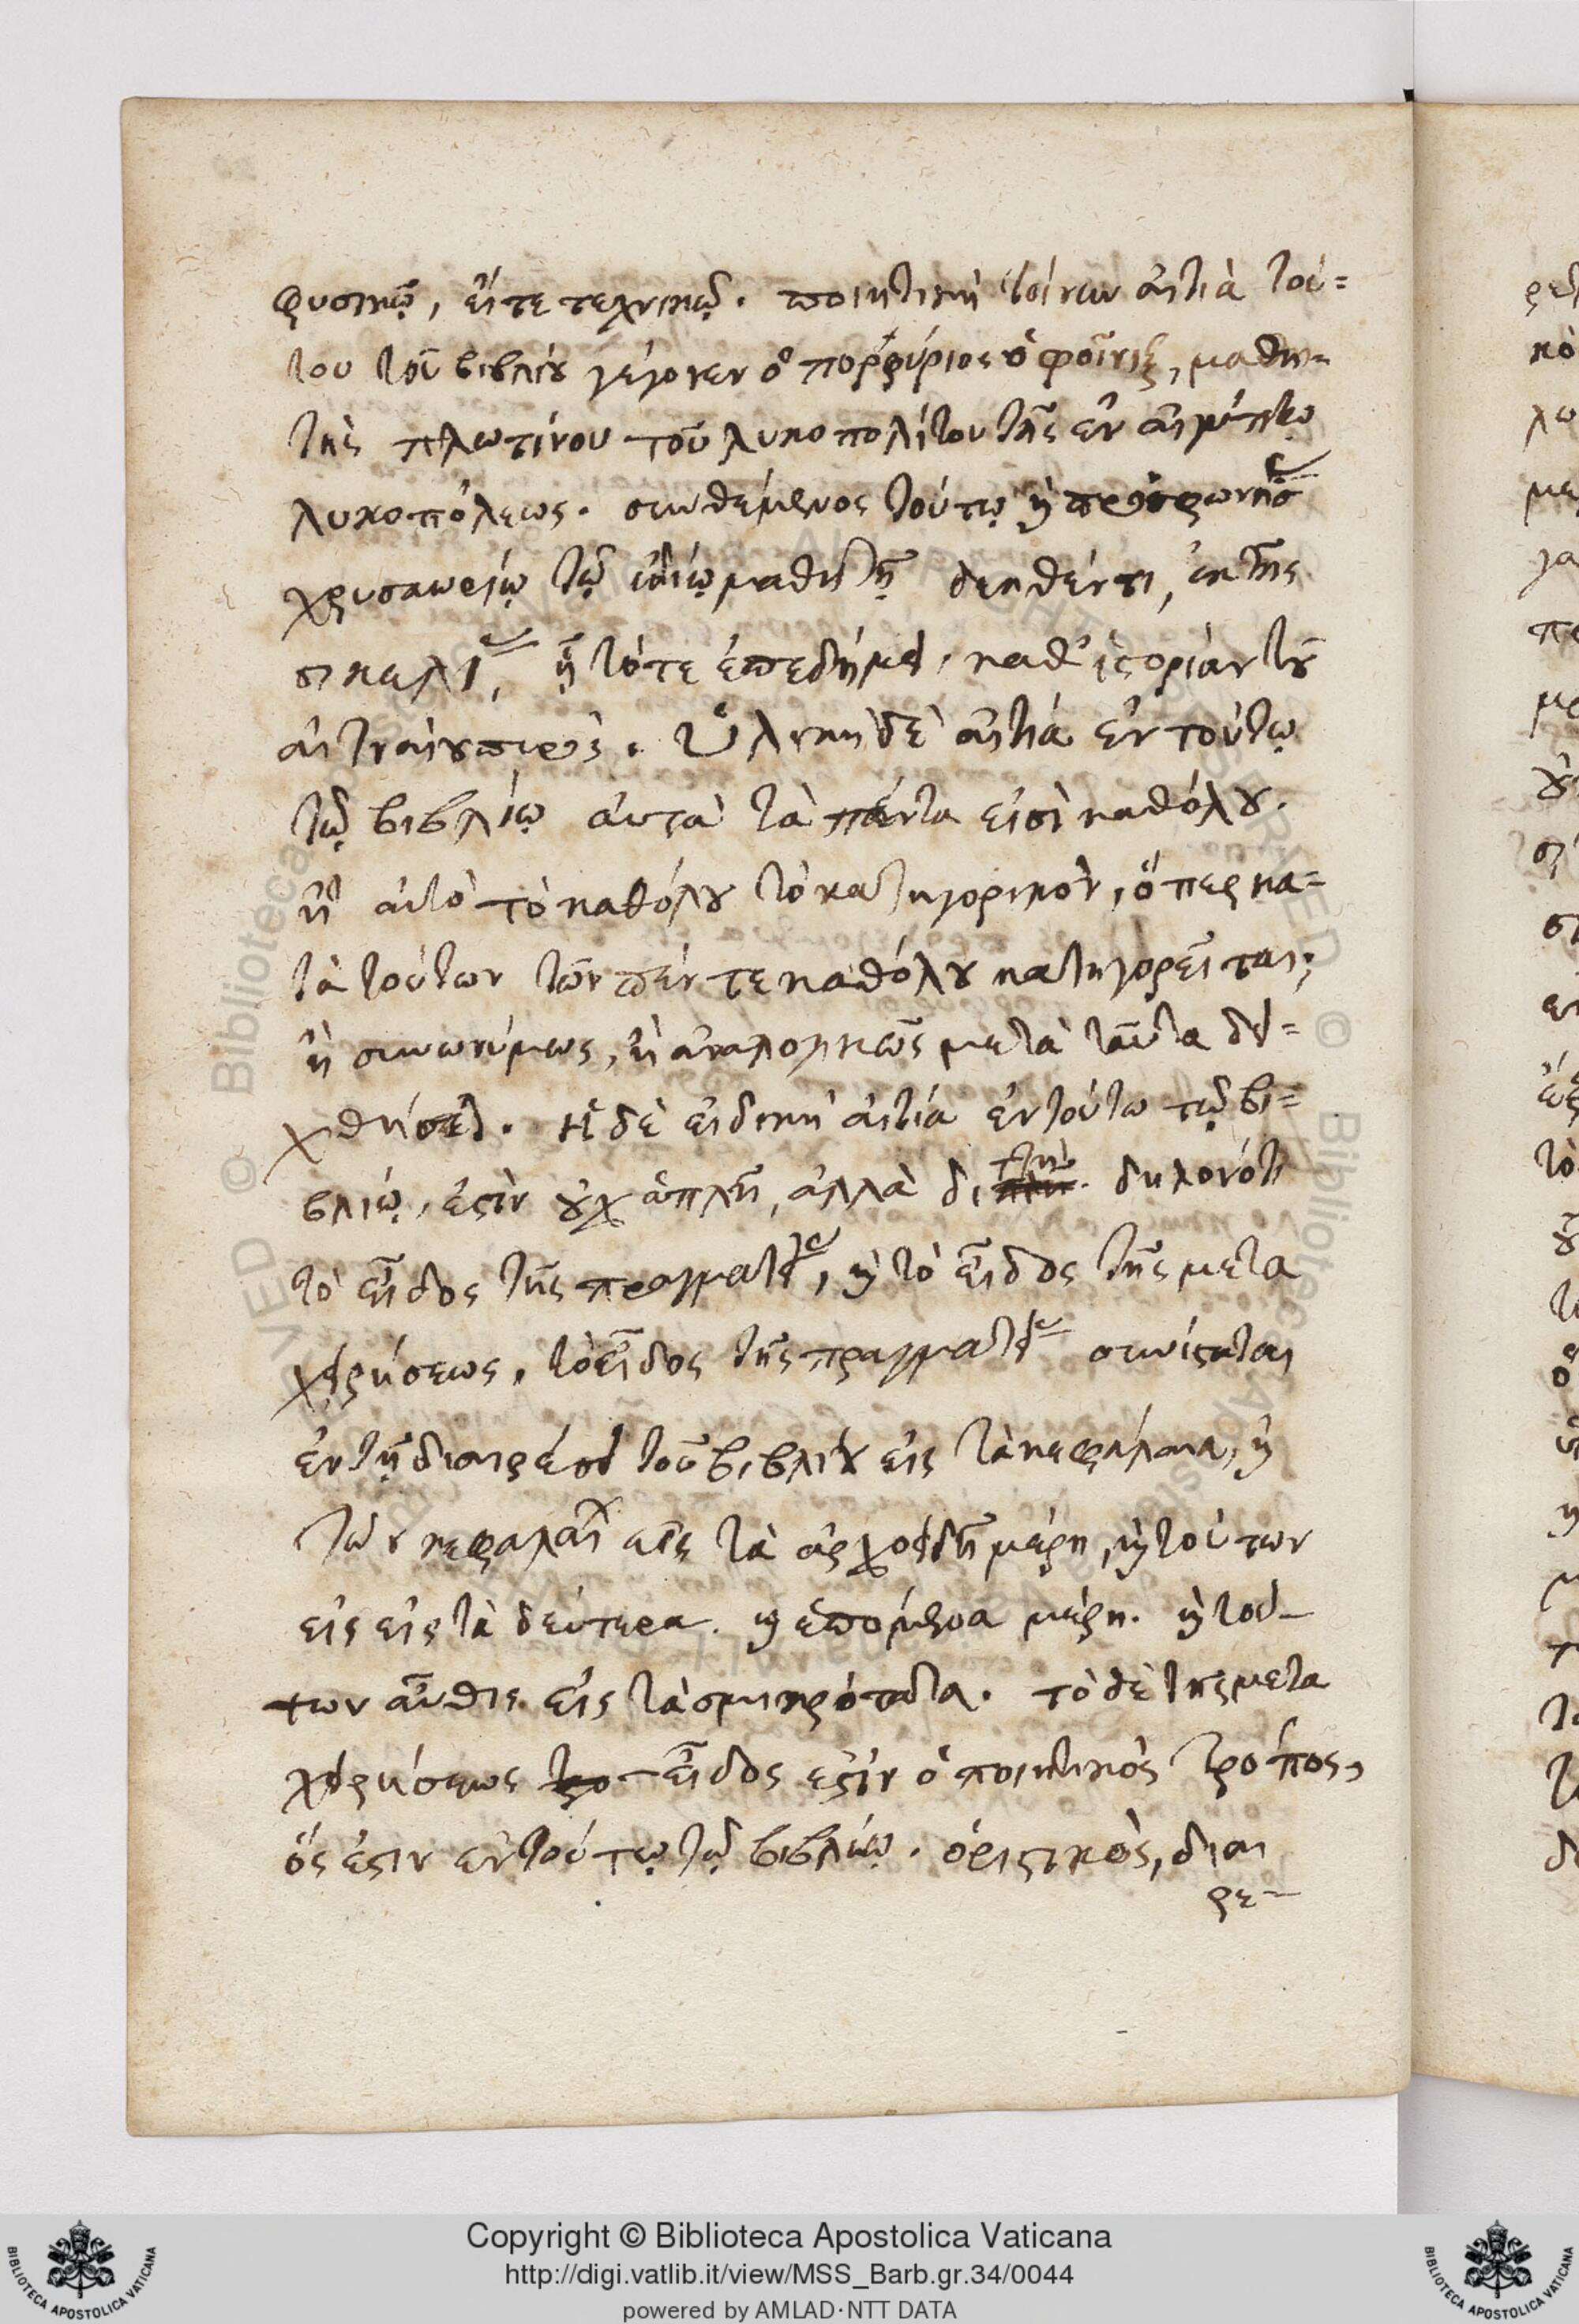 φυσικῷ, εἴτε τεχνικῷ. ποιητικὴ τοίνυν αἰτία τού=
του τοῦ βιβλίου γέγονεν ὁ πορφύριος ὁ φοῖνιξ, μαθη=
τὴς πλωτίνου τοῦ λυκοπολίτου τῆς ἐν αἰγύπτῳ
λυκοπόλεως. συνθέμενος τούτῳ καὶ προσφωνήσας
χρυσαωρίῳ τῷ ἰδίῳ μαθητῇ δεηθέντι, ἐκ τῆς
σικελίας, ᾗ τότε ἐπεδήμει. καθ' ἱστορίαν τοῦ
αἰτναίου πυρός. Ὑλικὴ δὲ αἰτία ἐν τούτῳ
τῷ βιβλίῳ αὐτὰ τὰ πέντε εἰσὶ καθόλου.
ἢ αὐτὸ τὸ καθόλου τὸ κατηγορικὸν, ὅπερ κα=
τὰ τούτων τῶν πέντε καθόλου κατηγορεῖται;
ἢ συνωνύμως, ἢ ἀναλογικῶς μετὰ ταῦτα δει=
χθήσεται. Ἡ δὲ εἰδικὴ αἰτία ἐν τούτω τῷ βι=
βλίῳ, ἐστὶν οὐχ ἁπλῆ, ἀλλὰ διττὴ. δηλονότι
τὸ εἶδος τῆς πραγματείας, καὶ τὸ εἶδος τῆς μετα
χειρήσεως. τὸ εἶδος τῆς πραγματείας συνίσταται
ἐν τῇ διαιρέσει τοῦ βιβλίου εἰς τὰ κεφάλαια, καὶ
τῶν κεφαλαίων εἰς τὰ ἀρχοειδῆ μέρη, καὶ τούτων
εἰς εἰς τὰ δεύτερα. καὶ ἑπόμενα μέρη. καὶ τού-
των αὖθις εἰς τὰ σμικρότατα. τὸ δὲ τῆς μετα
χειρήσεως εἶδος ἐστὶν ὁ ποιητικὸς τρόπος,
ὅς ἐστιν ἐν τούτῳ τῷ βιβλίῳ. ὁριστικὸς, διαι
ρε-
Copyright © Biblioteca Apostolica Vaticana
http://digi.vatlib.it/view/MSS_Barb.gr.34/0044
powered by AMLAD·NTT DATA